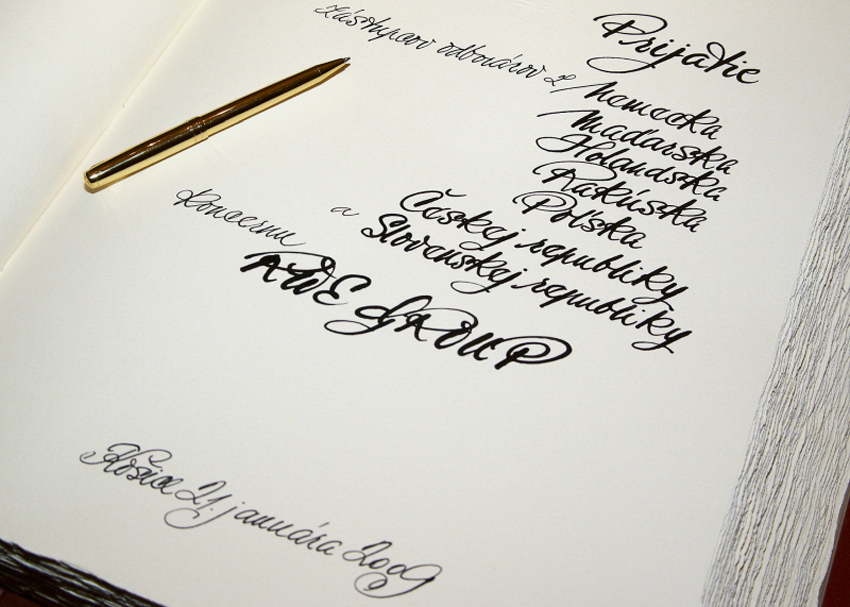 Prijatie
Zástupcov odborárov z
Nemecka
Maďarska
Holandska
Rakúska
Poľska
a Českej republiky
Slovenskej republiky
Koncernu
RWE GROUP
Košice 21. januára 2009